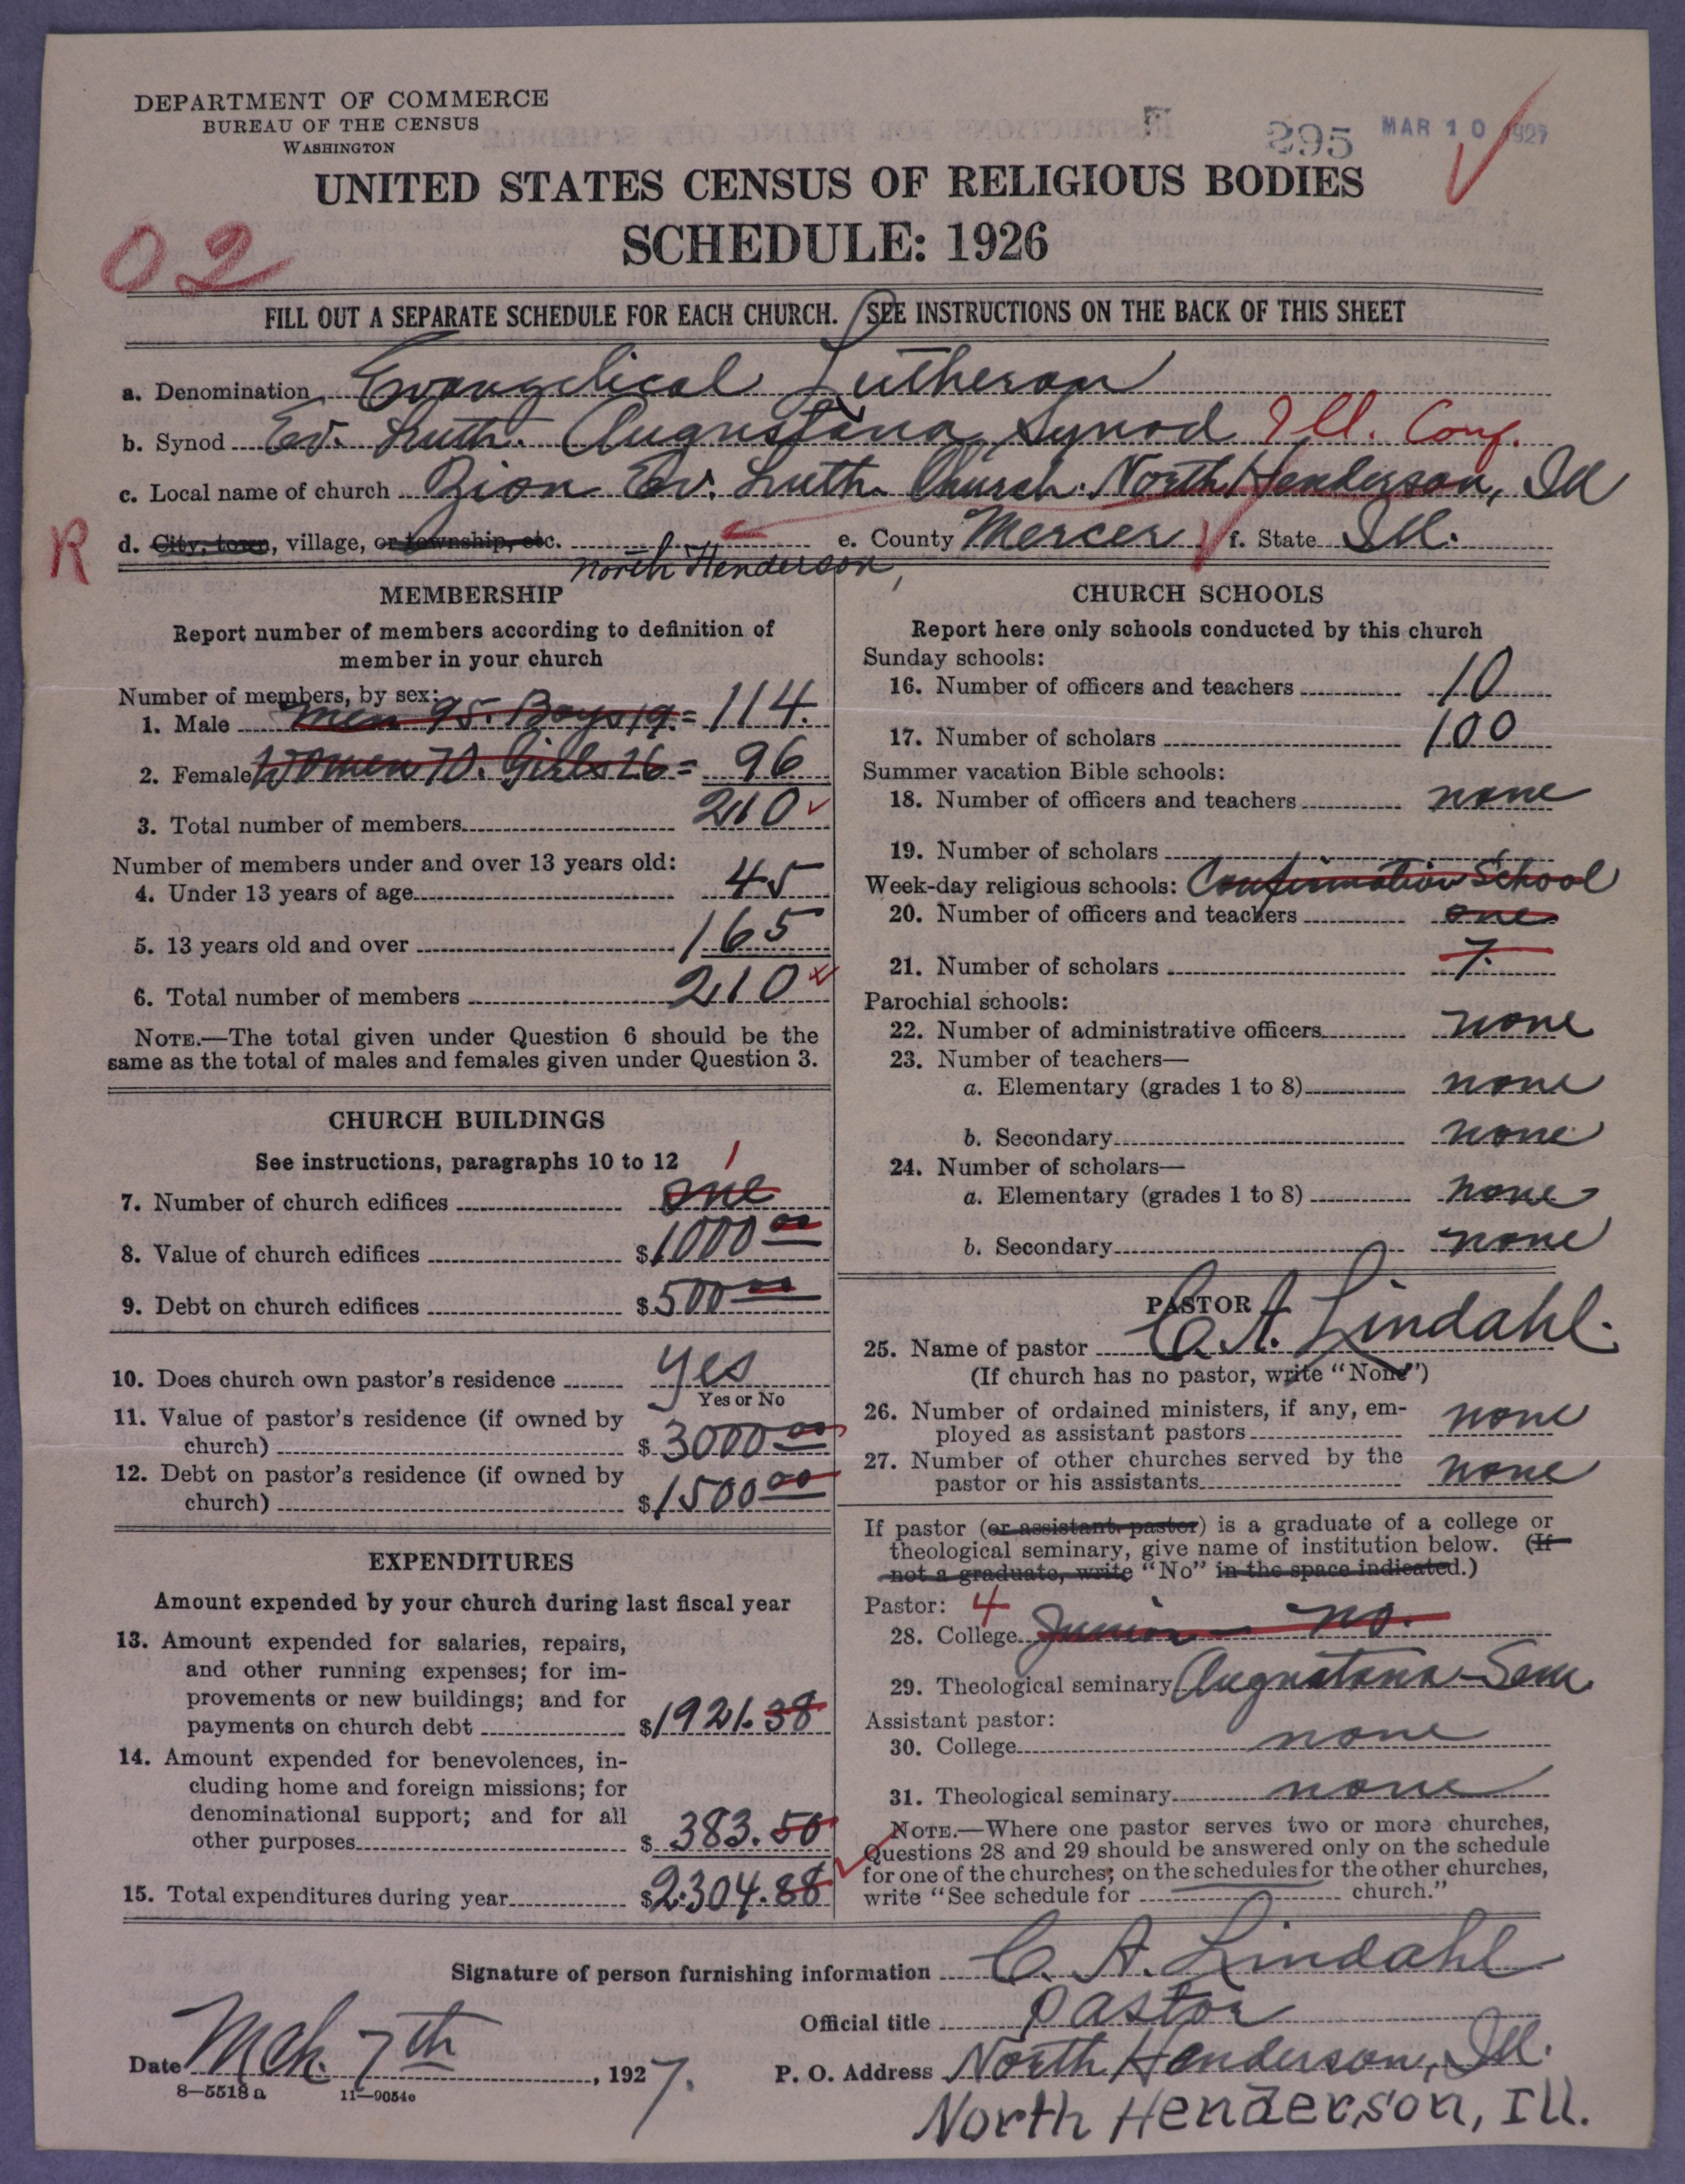 DEPARTMENT OF COMMERCE
BUREAU OF THE CENSUS
WASHINGTON
295
MAR 10 1927
UNITED STATES CENSUS OF RELIGIOUS BODIES
SCHEDULE: 1926
02
FILL OUT A SEPARATE SCHEDULE FOR EACH CHURCH. SEE INSTRUCTIONS ON THE BACK OF THIS SHEET
a. Denomination Evangelical Lutheran
b. Synod Ev. Luth. Augustana Synod Ill. Conf.
c. Local name of church Zion Ev. Luth. Church. North Henderson, Ill
R
d. City, town, village, or township, etc. North Henderson, e. County Mercer f. State Ill.
MEMBERSHIP
Report number of members according to definition of
member in your church
Number of members, by sex:
1. Male Men 95. Boys 19. = 114.
2. Female Women 70. Girls 26 = 96
3. Total number of members 210
Number of members under and over 13 years old:
4. Under 13 years of age 45
5. 13 years old and over 165
6. Total number of members 210
NOTE.—The total given under Question 6 should be the
same as the total of males and females given under Question 3.
CHURCH BUILDINGS
See instructions, paragraphs 10 to 12
1
7. Number of church edifices one
8. Value of church edifices $1000 00
9. Debt on church edifices $500 00
10. Does church own pastor's residence Yes
Yes or No
11. Value of pastor's residence (if owned by
church) $3000 00
12. Debt on pastor's residence (if owned by
church) $1500 00
EXPENDITURES
Amount expended by your church during last fiscal year
13. Amount expended for salaries, repairs,
and other running expenses; for im-
provements or new buildings; and for
payments on church debt $1921.38
14. Amount expended for benevolences, in-
cluding home and foreign missions; for
denominational support; and for all
other purposes $383.50
15. Total expenditures during year $2304.88
CHURCH SCHOOLS
Report here only schools conducted by this church
Sunday schools:
16. Number of officers and teachers 10
17. Number of scholars 100
Summer vacation Bible schools:
18. Number of officers and teachers none
19. Number of scholars
Week-day religious schools: Confirmation School
20. Number of officers and teachers one
21. Number of scholars 7.
Parochial schools:
22. Number of administrative officers none
23. Number of teachers—
a. Elementary (grades 1 to 8) none
b. Secondary none
24. Number of scholars—
a. Elementary (grades 1 to 8) none
b. Secondary none
PASTOR
25. Name of pastor C. A. Lindahl.
(If church has no pastor, write "None")
26. Number of ordained ministers, if any, em-
ployed as assistant pastors none
27. Number of other churches served by the
pastor or his assistants none
If pastor (or assistant pastor) is a graduate of a college or
theological seminary, give name of institution below. (If
not a graduate, write "No" in the space indicated.)
Pastor: 4
28. College Junior — no.
29. Theological seminary Augustana Sem.
Assistant pastor:
30. College none
31. Theological seminary none
NOTE.—Where one pastor serves two or more churches,
Questions 28 and 29 should be answered only on the schedule
for one of the churches; on the schedules for the other churches,
write "See schedule for church."
Signature of person furnishing information C. A. Lindahl
Official title Pastor
Date Mch. 7th, 1927.
P. O. Address North Henderson, Ill.
North Henderson, Ill.
8—5518 a 11—9054c